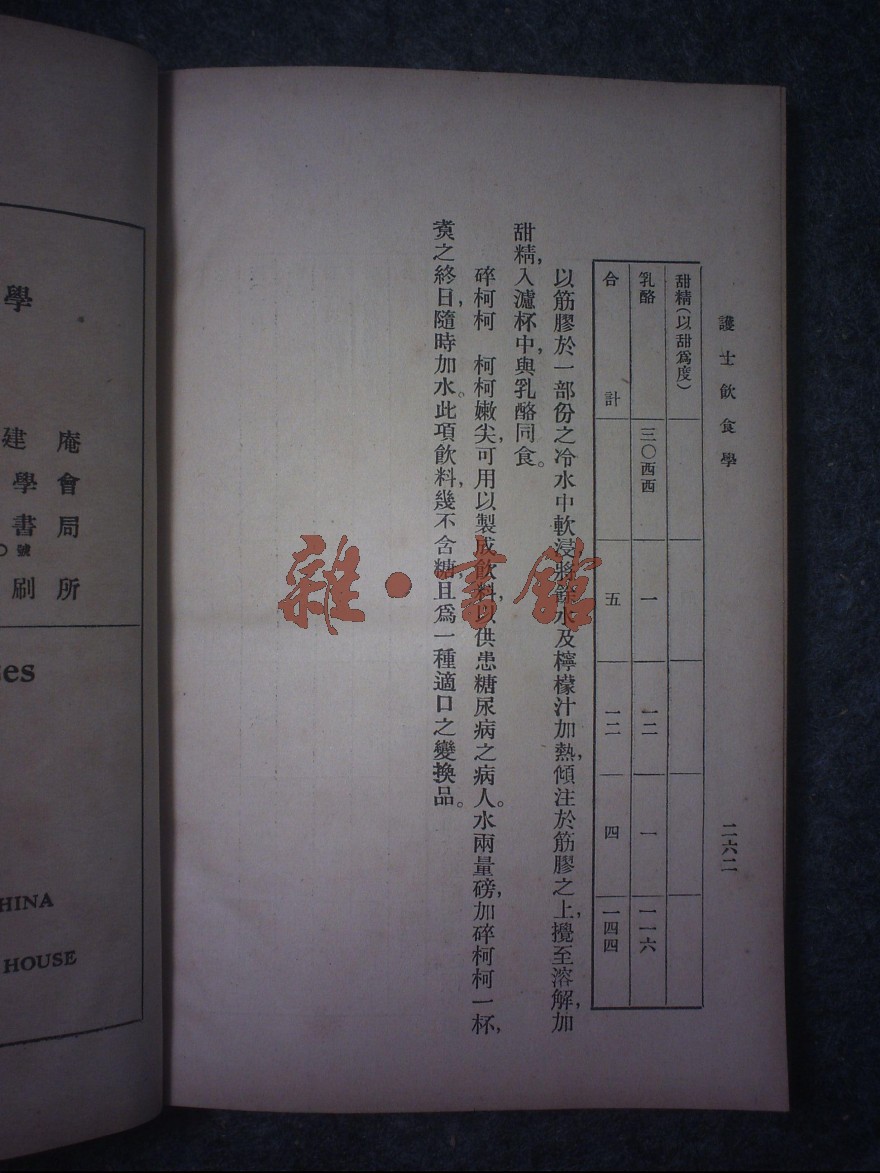 護士飲食學
二六二
甜精(以甜爲度)
乳酪 三〇西西 一 一二 一 一一六
合計 五 一二 四 一四四
以筋膠於一部份之冷水中軟浸,將餘水及檸檬汁加熱,傾注於筋膠之上,攪至溶解,加
甜精,入濾杯中,與乳酪同食。
碎柯柯 柯柯嫩尖,可用以製成飲料,以供患糖尿病之病人。水兩量磅,加碎柯柯一杯,
煑之終日,隨時加水。此項飲料,幾不含糖,且爲一種適口之變換品。
雜·書館
學
建庵
學會
書局
〇號
刷所
HINA
HOUSE